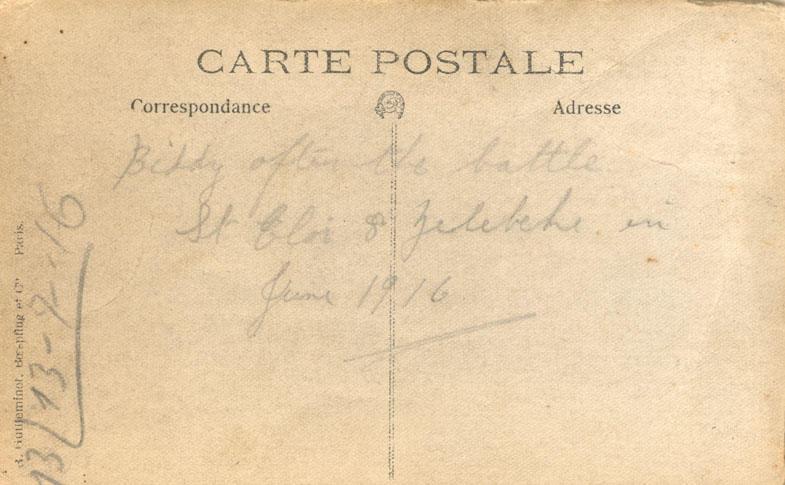 CARTE POSTALE
Correspondance
Adresse
Biddy after the battle
St Eloi & Zelebeke in
June 1916
13/13-9-16
R. Guilleminot, Bœspflug et Cie Paris.